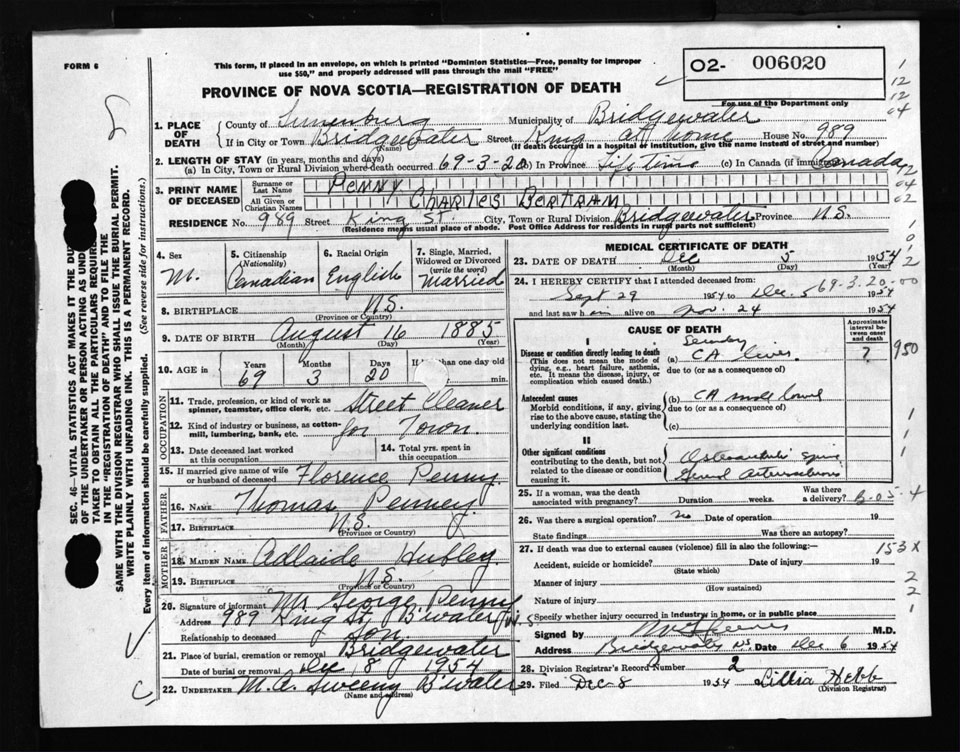 FORM 6
This form, if placed in an envelope, on which is printed "Dominion Statistics—Free, penalty for improper
use $50," and properly addressed will pass through the mail "FREE"
O2- 006020
For use of the Department only
PROVINCE OF NOVA SCOTIA—REGISTRATION OF DEATH
1. PLACE OF DEATH
County of Lunenburg Municipality of Bridgewater
If in City or Town Bridgewater Street King at home House No. 989
(Name) (If death occurred in a hospital or institution, give the name instead of street and number)
2. LENGTH OF STAY (in years, months and days)
(a) In City, Town or Rural Division where death occurred 69-3-20 (b) In Province Life Time (c) In Canada (if immigrant) Canada
3. PRINT NAME OF DECEASED
Surname or Last Name PENNY
All Given or Christian Names Charles Bertram
RESIDENCE No. 989 Street King St. City, Town or Rural Division Bridgewater Province N.S.
(Residence means usual place of abode. Post Office Address for residents in rural parts not sufficient)
4. Sex M.
5. Citizenship (Nationality) Canadian
6. Racial Origin English
7. Single, Married, Widowed or Divorced (write the word) Married
8. BIRTHPLACE N.S.
(Province or Country)
9. DATE OF BIRTH August 16 1885
(Month) (Day) (Year)
10. AGE in Years Months Days If less than one day old
69 3 20 min.
OCCUPATION
11. Trade, profession, or kind of work as spinner, teamster, office clerk, etc. Street Cleaner
12. Kind of industry or business, as cotton-mill, lumbering, bank, etc. for Town
13. Date deceased last worked at this occupation
14. Total yrs. spent in this occupation
15. If married give name of wife or husband of deceased Florence Penny
FATHER
16. NAME Thomas Penney
17. BIRTHPLACE N.S.
(Province or Country)
MOTHER
18. MAIDEN NAME Adlaide Hubley
19. BIRTHPLACE N.S.
(Province or Country)
20. Signature of informant Mr George Penny
Address 989 King St, B'water N.S.
Relationship to deceased son.
21. Place of burial, cremation or removal Bridgewater
Date of burial or removal Dec 8 1954
22. UNDERTAKER M.A. Sweeny B'water
(Name and address)
MEDICAL CERTIFICATE OF DEATH
23. DATE OF DEATH Dec 5 1954
(Month) (Day) (Year)
24. I HEREBY CERTIFY that I attended deceased from:
Sept 29 1954 to Dec. 5 1954
69-3-20-00
and last saw him alive on Nov. 24 1954
CAUSE OF DEATH
Approximate interval between onset and death
I
Disease or condition directly leading to death
(a) CA liver ?
950
This does not mean the mode of dying, e.g., heart failure, asthenia, etc. It means the disease, injury, or complication which caused death.)
due to (or as a consequence of)
Antecedent causes
Morbid conditions, if any, giving rise to the above cause, stating the underlying condition last.
(b) CA small bowel
due to (or as a consequence of)
(c)
II
Other significant conditions
contributing to the death, but not related to the disease or condition causing it.
25. If a woman, was the death associated with pregnancy? Duration weeks. Was there a delivery?
B-05-4
26. Was there a surgical operation? no Date of operation 19
State findings Was there an autopsy?
27. If death was due to external causes (violence) fill in also the following:—
153X
Accident, suicide or homicide? Date of injury 19
(State which)
Manner of injury
(How sustained)
Nature of injury
Specify whether injury occurred in industry in home, or in public place
Signed by M.D.
Address Bridgewater N.S. Date Dec 6 1954
28. Division Registrar's Record Number 2
29. Filed Dec-8 1954 Lillia Hebb
(Division Registrar)
SEC. 46—VITAL STATISTICS ACT MAKES IT THE DU
OF THE UNDERTAKER OR PERSON ACTING AS UND
TAKER TO OBTAIN ALL THE PARTICULARS REQUIRE
IN THE "REGISTRATION OF DEATH" AND TO FILE THE
SAME WITH THE DIVISION REGISTRAR WHO SHALL ISSUE THE BURIAL PERMIT.
WRITE PLAINLY WITH UNFADING INK. THIS IS A PERMANENT RECORD.
Every item of information should be carefully supplied. (See reverse side for instructions.)